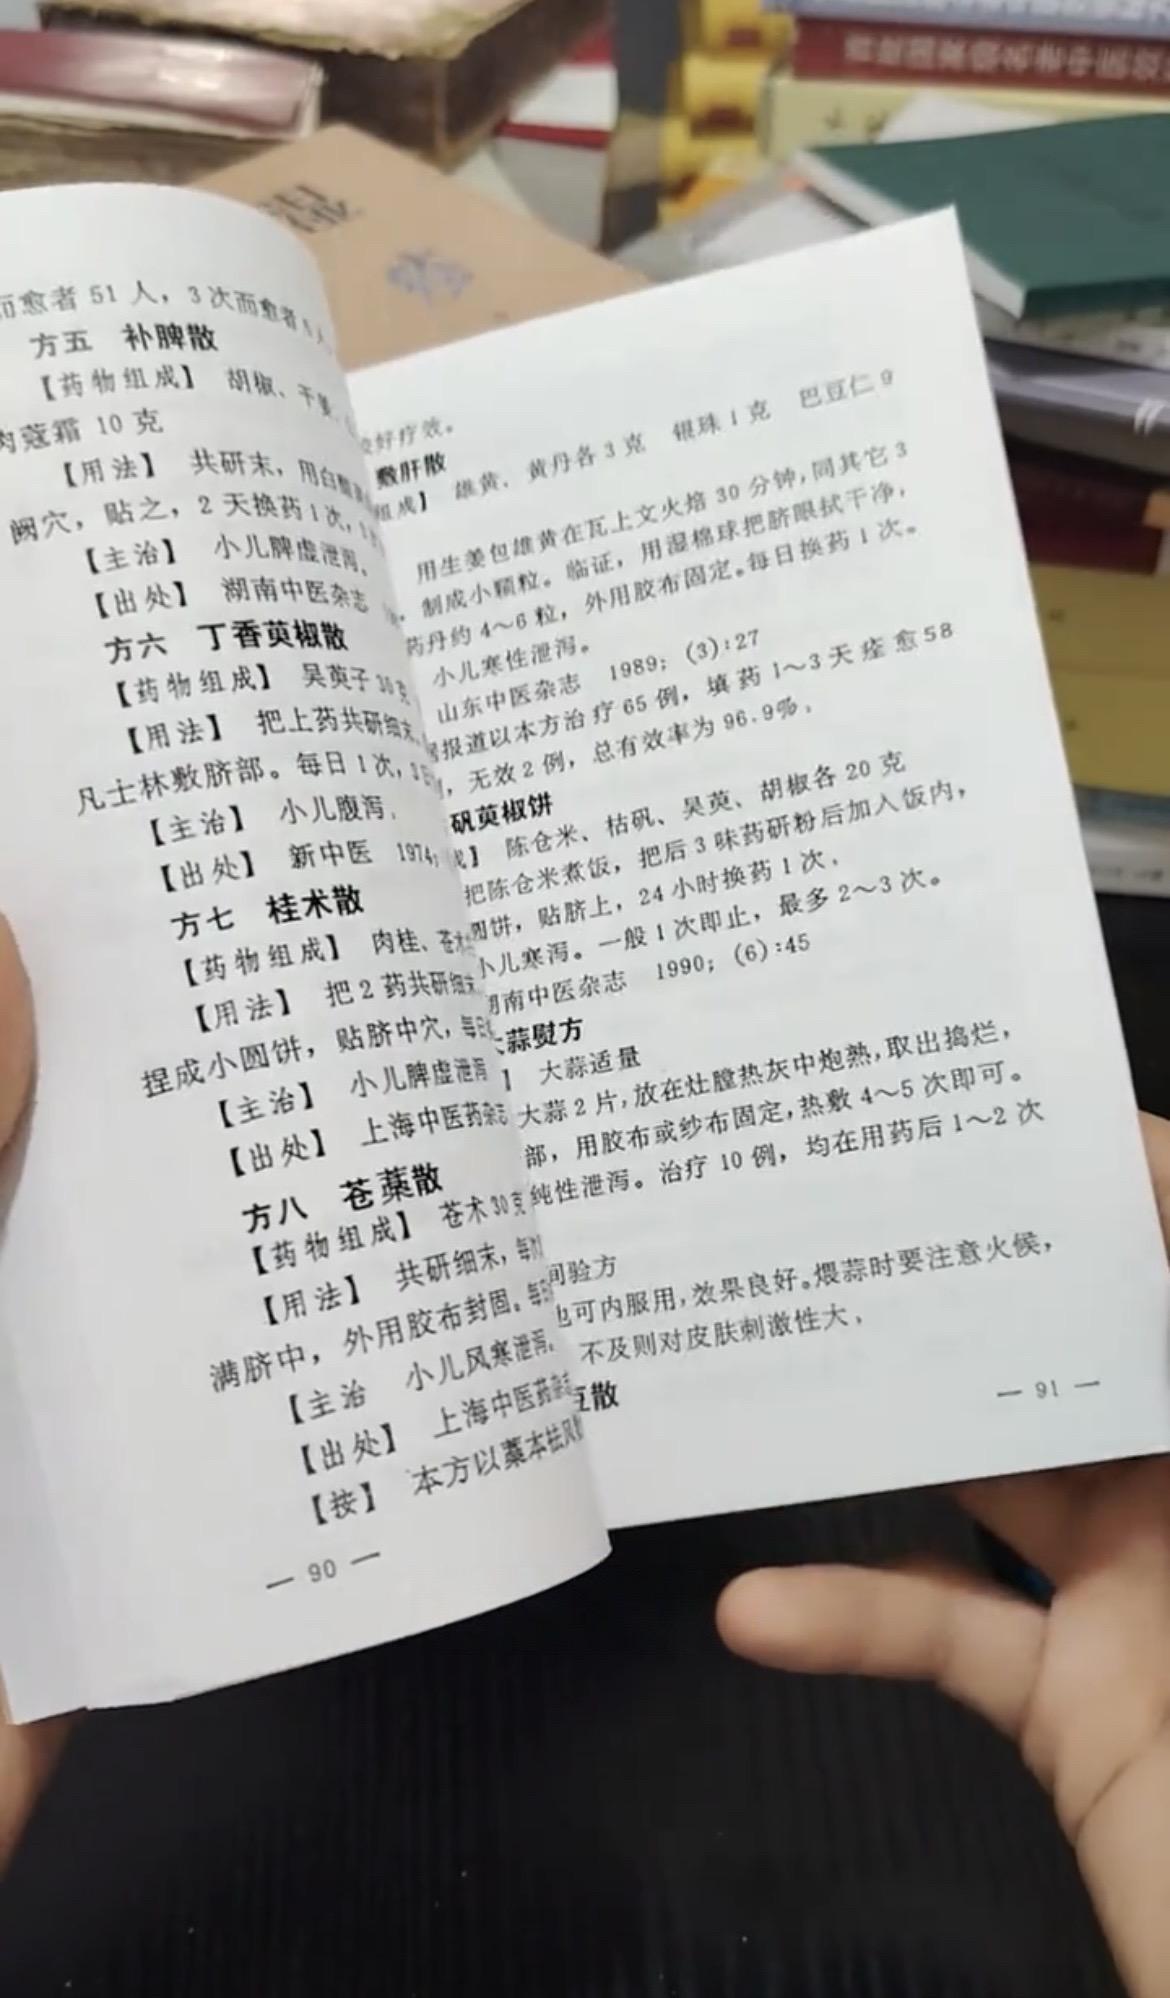 而愈者 51 人，3 次而愈者
方五 补脾散
【药物组成】 胡椒、干姜、
肉蔻霜 10 克
【用法】 共研末，用白
阙穴，贴之，2 天换药 1 次，
【主治】 小儿脾虚泄泻。
【出处】 湖南中医杂志
方六 丁香萸椒散
【药物组成】 吴萸子 30 克
【用法】 把上药共研细末、
凡士林敷脐部。每日 1 次，3
【主治】 小儿腹泻。
【出处】 新中医 1974;
方七 桂术散
【药物组成】 肉桂、苍术
【用法】 把 2 药共研细末
捏成小圆饼，贴脐中穴，每日
【主治】 小儿脾虚泄泻
【出处】 上海中医药杂志
方八 苍藁散
【药物组成】 苍术 30 克
【用法】 共研细末，每
满脐中，外用胶布封固。每
【主治 小儿风寒泄泻。
【出处】 上海中医药杂志
【按】 本方以藁本祛风
— 90 —
较好疗效。
敷肝散
组成】 雄黄、黄丹各 3 克 银珠 1 克 巴豆仁 9
用生姜包雄黄在瓦上文火焙 30 分钟，同其它 3
制成小颗粒。临证，用湿棉球把脐眼拭干净，
药丹约 4～6 粒，外用胶布固定。每日换药 1 次。
小儿寒性泄泻。
山东中医杂志 1989; (3):27
报道以本方治疗 65 例，填药 1～3 天痊愈 58
，无效 2 例，总有效率为 96.9%。
矾萸椒饼
成】 陈仓米、枯矾、吴萸、胡椒各 20 克
把陈仓米煮饭，把后 3 味药研粉后加入饭内，
圆饼，贴脐上，24 小时换药 1 次。
小儿寒泻。一般 1 次即止，最多 2～3 次。
湖南中医杂志 1990; (6):45
大蒜熨方
】 大蒜适量
大蒜 2 片，放在灶膛热灰中炮熟，取出捣烂，
部，用胶布或纱布固定，热敷 4～5 次即可。
纯性泄泻。治疗 10 例，均在用药后 1～2 次
间验方
也可内服用，效果良好。煨蒜时要注意火候，
不及则对皮肤刺激性大，
豆散
— 91 —